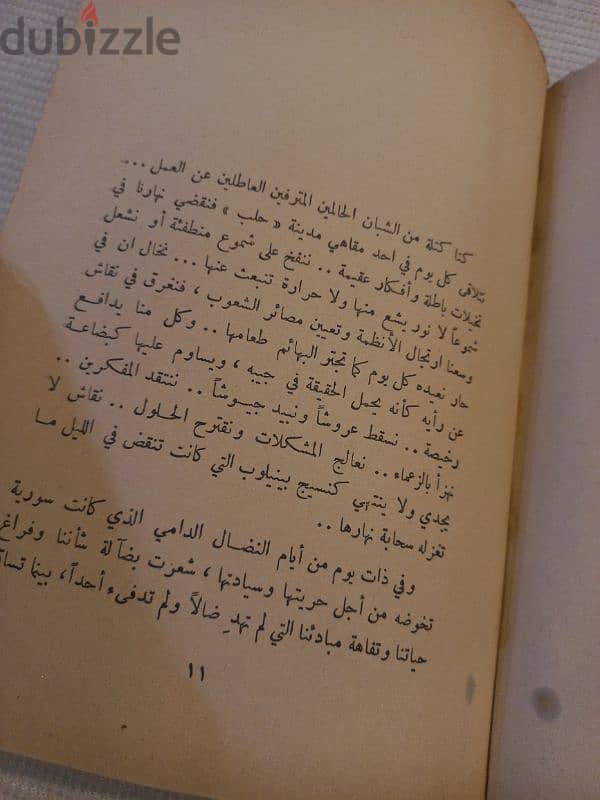 dubizzle
كنا كتلة من الشبان الحالمين المترفين العاطلين عن العمل ...
نتلاقى كل يوم في احد مقاهي مدينة « حلب » فنقضي نهارنا في
تخيلات باطلة وأفكار عقيمة .. ننفخ على شموع منطفئة أو نشعل
شموعاً لا نور يشع منها ولا حرارة تنبعث عنها ... نخال ان في
وسعنا ارتجال الأنظمة وتعيين مصائر الشعوب ، فنغرق في نقاش
حاد نعيده كل يوم كما تجتر البهائم طعامها .. وكل منا يدافع
عن رأيه كأنه يحمل الحقيقة في جيبه ، ويساوم عليها كبضاعة
رخيصة .. نسقط عروشاً ونبيد جيوشاً .. ننتقد المفكرين ..
نهزأ بالزعماء .. نعالج المشكلات ونقترح الحلول .. نقاش لا
يجدي ولا ينتهي كنسيج بينيلوب التي كانت تنقض في الليل ما
تغزله سحابة نهارها ..
وفي ذات يوم من أيام النضال الدامي الذي كانت سورية
تخوضه من أجل حريتها وسيادتها ، شعرت بضآلة شأننا وفراغ
حياتنا وتفاهة مبادئنا التي لم تهدِ ضالاً ولم تدفىء أحداً، بينما
١١